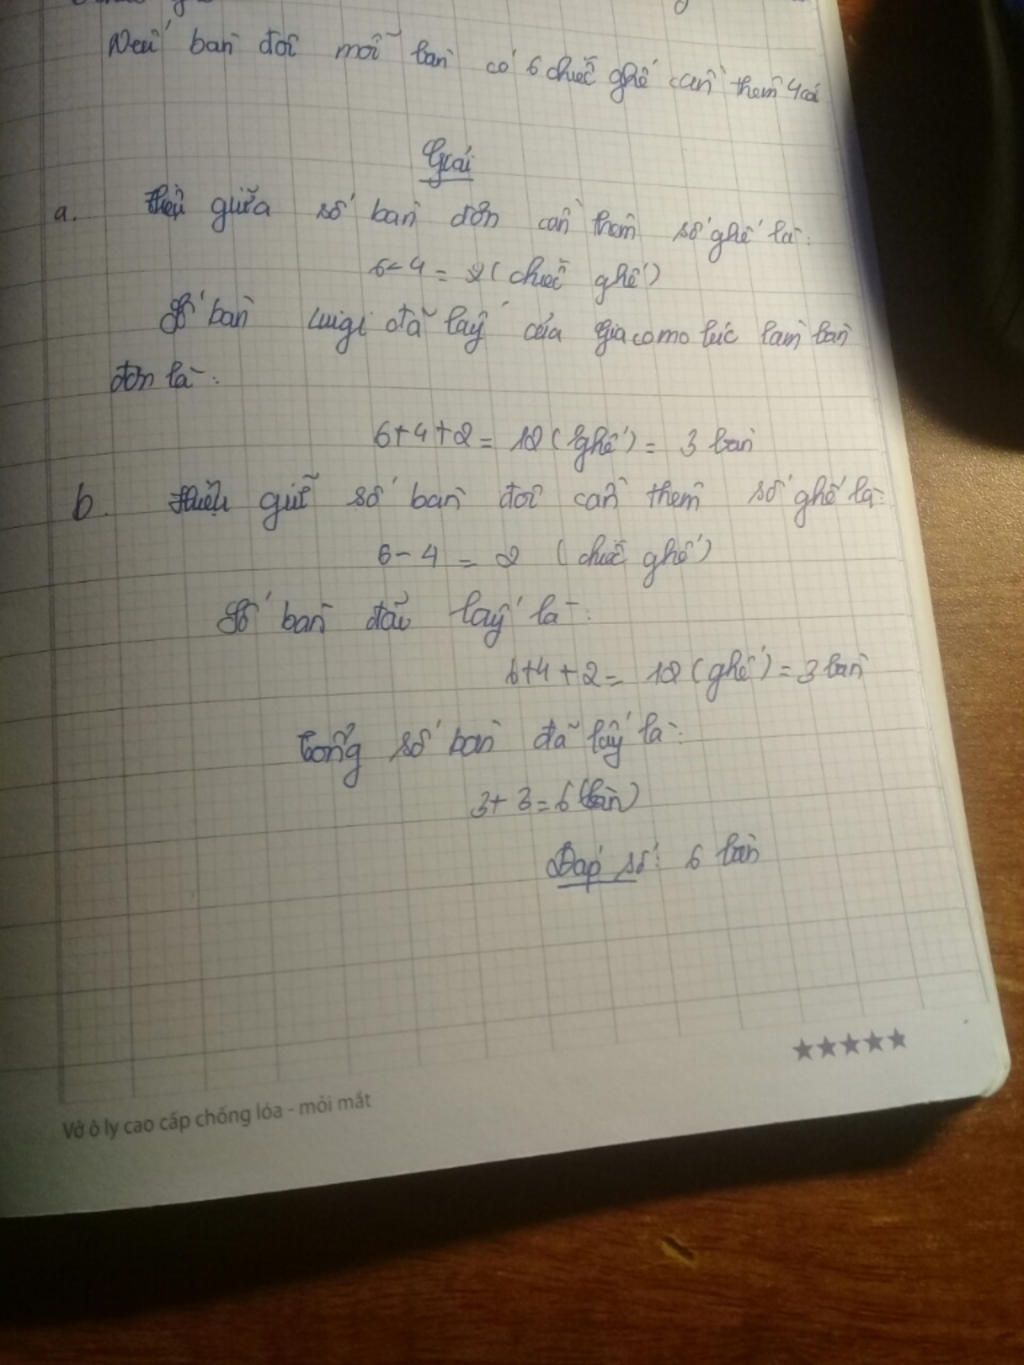 Nếu bàn đôi mỗi bàn có 6 chiếc ghế cần thêm 4 cái
Giải
a. Hiệu giữa số bàn đơn cần thêm số ghế là:
6 - 4 = 2 (chiếc ghế)
Số bàn Luigi đã lấy của Giacomo lúc làm bàn
đơn là:
6+4+2 = 12 (ghế) = 3 bàn
b. Hiệu giữ số bàn đôi cần thêm số ghế là:
6 - 4 = 2 (chiếc ghế)
Số bàn đã lấy là:
6+4+2 = 12 (ghế) = 3 bàn
Tổng số bàn đã lấy là:
3+3=6 (bàn)
Đáp số: 6 bàn
★★★★★
Vở ô ly cao cấp chống lóa - mỏi mắt